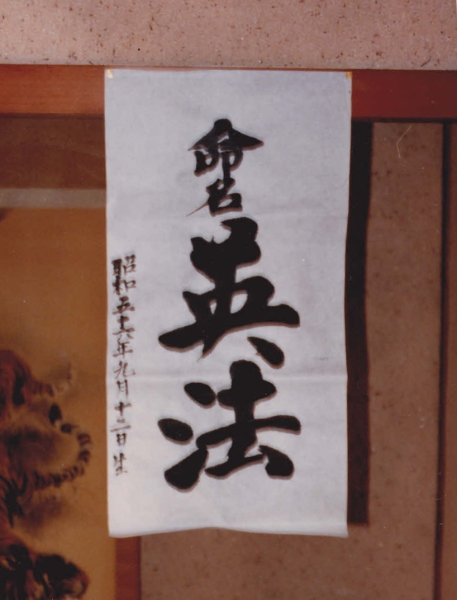 命名 英法
昭和五十六年九月十二日生